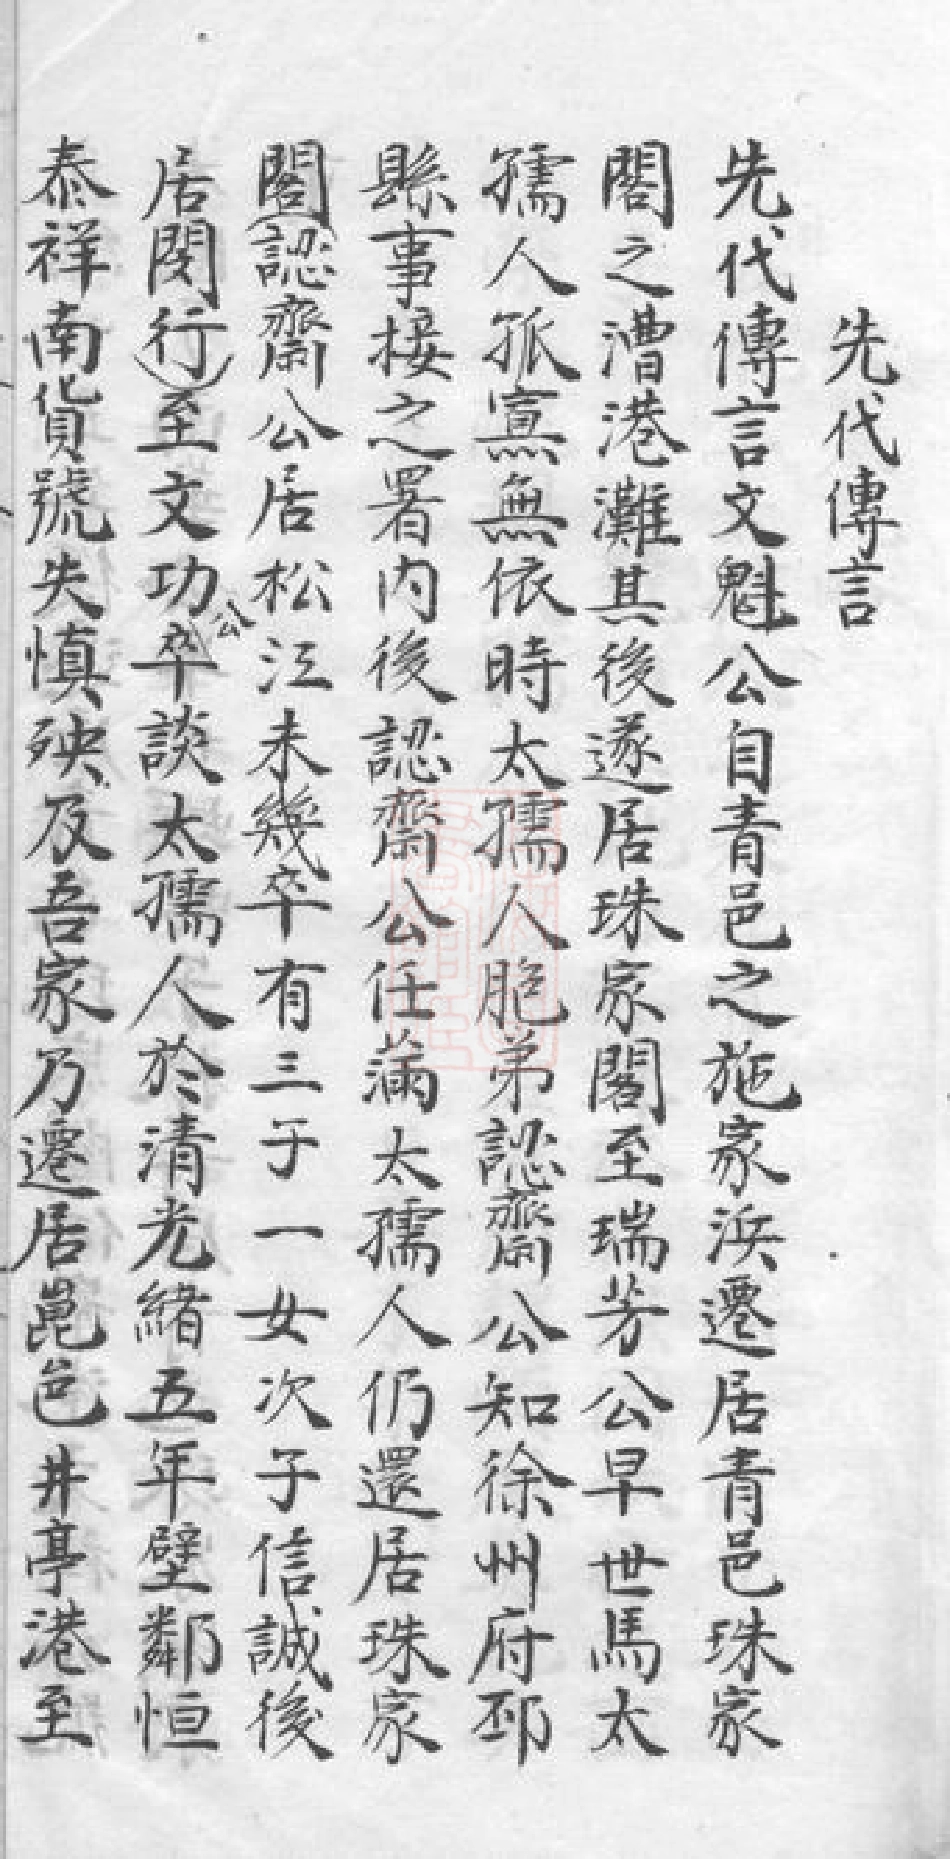 先代傳言
先代傳言文魁公自青邑之施家浜遷居青邑珠家
閣之漕港灘其後遂居珠家閣至瑞芳公早世馬太
孺人孤寡無依時太孺人胞弟認齋公知徐州府邳
縣事接之署内後認齋公任滿太孺人仍還居珠家
閣(認齋公居松江未幾卒有三子一女次子信誠後
居閔行)至文功公卒談太孺人於清光緒五年壁鄰恒
泰祥南貨號失慎殃及吾家乃遷居崑邑井亭港至